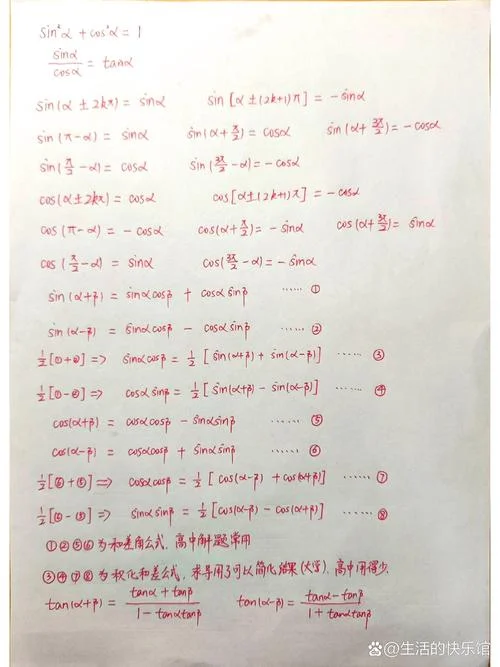 sin²α + cos²α = 1
sinα/cosα = tanα
sin(α ± 2kπ) = sinα sin[α ± (2k+1)π] = -sinα
sin(π-α) = sinα sin(α+π/2) = cosα sin(α+3π/2) = -cosα
sin(π/2-α) = cosα sin(3π/2-α) = -cosα
cos(α±2kπ) = cosα cos[α±(2k+1)π] = -cosα
cos(π-α) = -cosα cos(α+π/2) = -sinα cos(α+3π/2) = sinα
cos(π/2-α) = sinα cos(3π/2-α) = -sinα
sin(α+β) = sinαcosβ + cosαsinβ ...... ①
sin(α-β) = sinαcosβ - cosαsinβ ...... ②
1/2[①+②] => sinαcosβ = 1/2[sin(α+β) + sin(α-β)] ...... ③
1/2[①-②] => cosαsinβ = 1/2[sin(α+β) - sin(α-β)] ...... ④
cos(α+β) = cosαcosβ - sinαsinβ ...... ⑤
cos(α-β) = cosαcosβ + sinαsinβ ...... ⑥
1/2[⑥+⑤] => cosαcosβ = 1/2[cos(α-β) + cos(α+β)] ...... ⑦
1/2[⑥-⑤] => sinαsinβ = 1/2[cos(α-β) - cos(α+β)] ...... ⑧
①②⑤⑥为和差角公式,高中解题常用
③④⑦⑧为积化和差公式,求导用了可以简化结果(大学),高中用得少.
tan(α+β) = (tanα + tanβ)/(1 - tanαtanβ) tan(α-β) = (tanα - tanβ)/(1 + tanαtanβ)
@生活的快乐馆